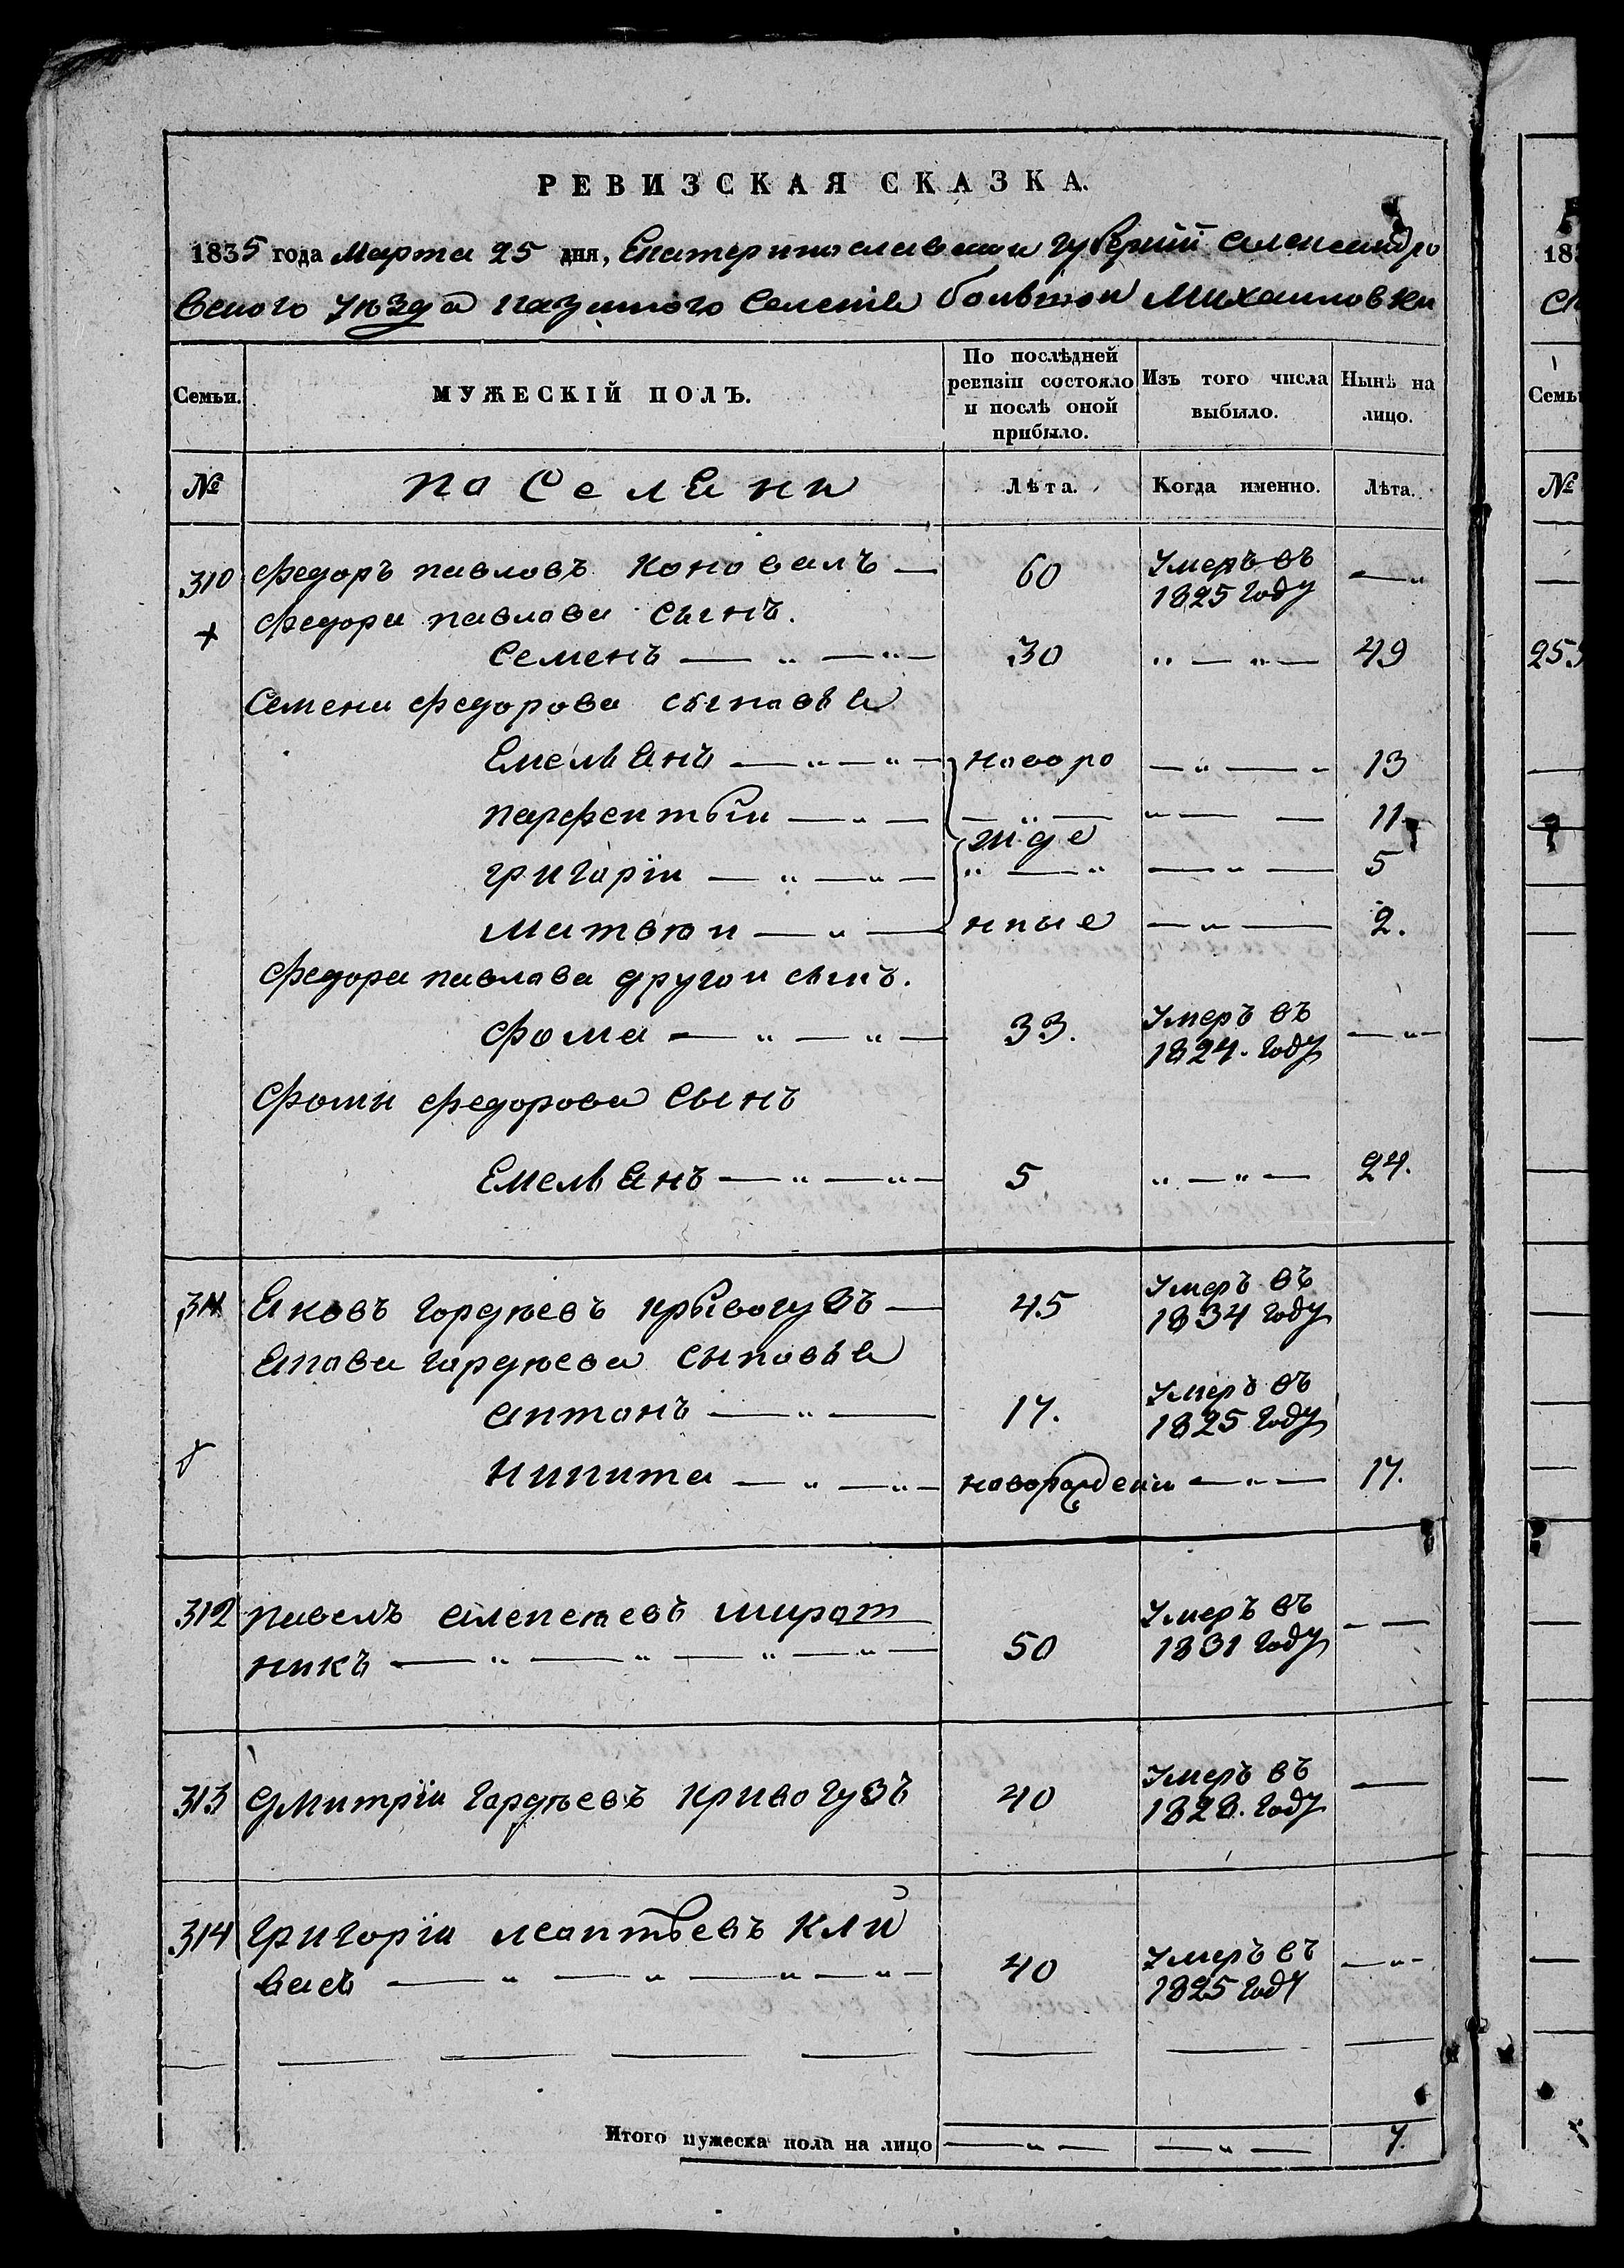 РЕВИЗСКАЯ СКАЗКА.
1835 года Марта 25 дня, Екатеринославской губернiй Александро
вского уѣзда казенного Селенiя большой Михаиловки
Семьи. МУЖЕСКІЙ ПОЛЪ. По послѣдней ревизіи состояло и послѣ оной прибыло. Изъ того числа выбыло. Нынѣ на лицо.
№ поселяни Лѣта. Когда именно. Лѣта.
310 Федоръ павловъ коновалъ — 60 Умеръ въ 1825 году — "
+ Федора павлава сынъ.
Семенъ — " — " — 30 " — " — 49
Семена Федорова сыновья
Емельянъ — " — " — новоро — " — " 13
парфентьи — " — — " — " — — 11
жде
григорiи — " — " — " — " — " — 5
матвѣи — " — нные — " — 2.
Федора павлава другои сынъ.
Фома — " — " — 33. Умеръ въ 1824. году — " —
Фомы Федорова сынъ
Емельянъ — " — " — 5 " — " — 24.
311 Яковъ гордѣевъ крывогузъ — 45 Умеръ въ 1834 году
Якова гордѣева сыновья
антонъ — " — 17. Умеръ въ 1825 году
Никита — " — " — новорожденн — " — 17.
312 павелъ алексѣевъ широт
никъ — " — " — " — " — 50 Умеръ въ 1831 году — —
313 дмитрiи гордѣевъ кривогузъ 40 Умеръ въ 1828. году —
314 григорiи леонтьевъ кли
— " — " — " — " — 40 Умеръ въ 1825 году — " —
Итого мужеска пола на лицо — " — — " — 7.
18
Семьи
№
255